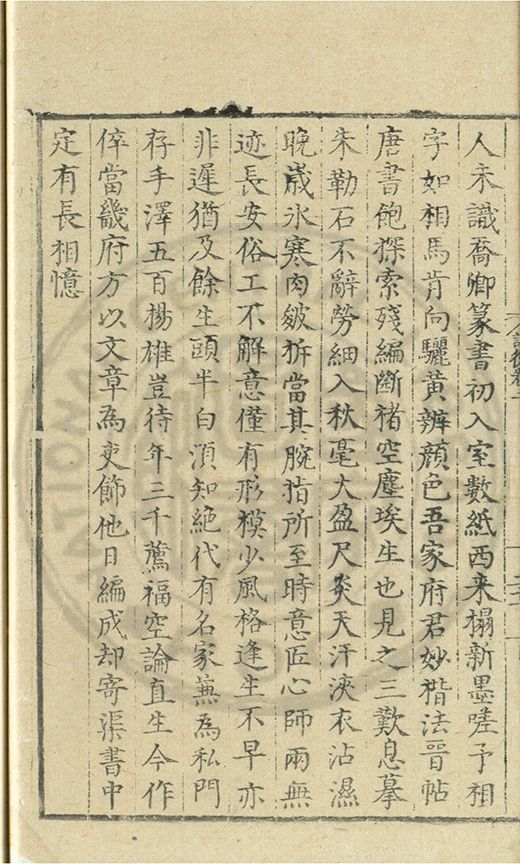 人未識喬卿篆書初入室數紙西来搨新墨嗟予相
字如相馬肯向驪黄辨顔色吾家府君妙楷法晉帖
唐書飽探索殘編斷禇空塵埃生也見之三歎息摹
朱勒石不辭勞細入秋毫大盈尺炎天汗浹衣沾濕
晩歳氷寒肉皴拆當其腕指所至時意匠心師兩無
迹長安俗工不解意僅有形模少風格逢生不早亦
非遲猶及餘生頭半白湏知絶代有名家兼為私門
存手澤五百揚雄豈待年三千薦福空論直生今作
倅當畿府方以文章為吏飾他日編成却寄渠書中
定有長相憶